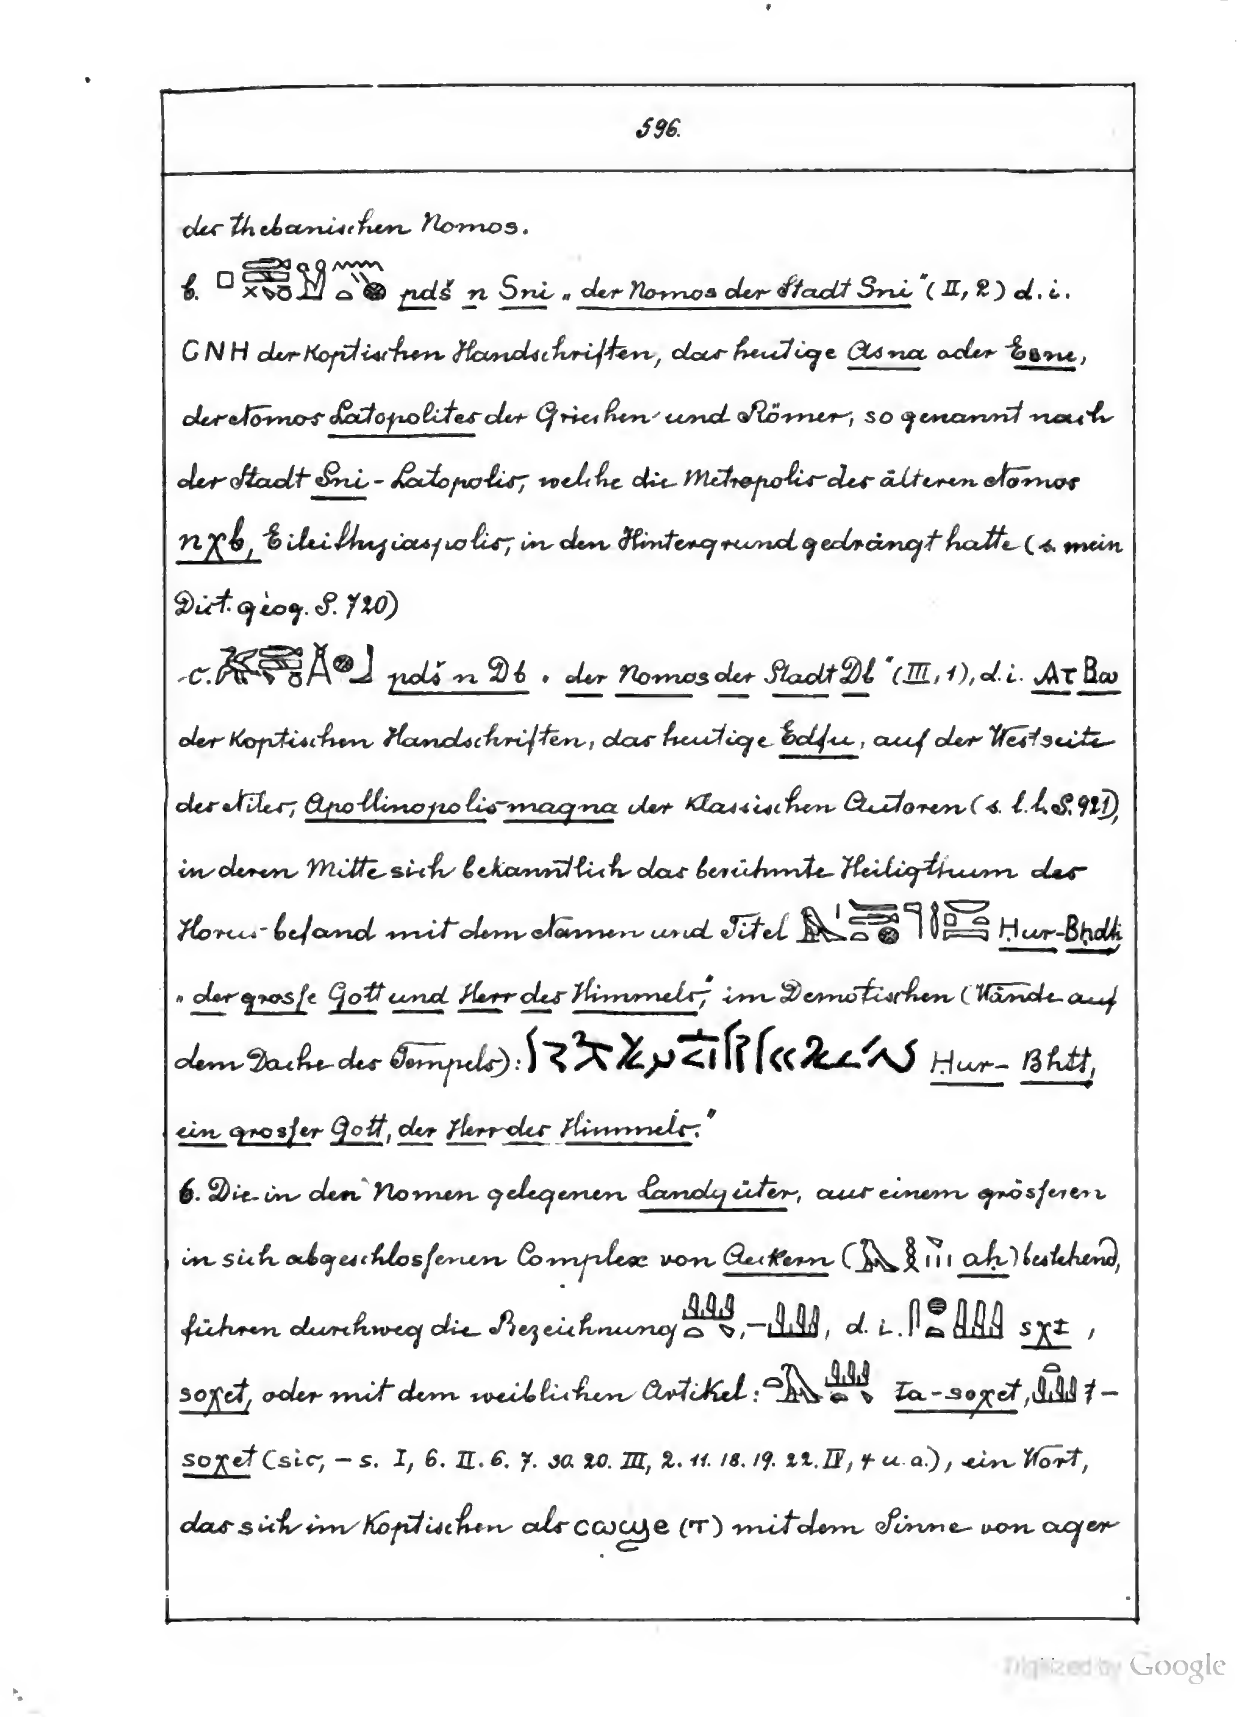 596.
des thebanischen Nomos.
b. pdš n Sni „der Nomos der Stadt Sni“ (II, 2) d. i.
CNH der Koptischen Handschriften, das heutige Asna oder Esne,
der Nomos Latopolites der Griechen und Römer, so genannt nach
der Stadt Sni-Latopolis, welche die Metropolis des älteren Nomos
nχb, Eileithyiaspolis, in den Hintergrund gedrängt hatte (s. mein
Dict. géog. S. 720)
c. pdš n Db „der Nomos der Stadt Db“ (III, 1), d. i. ⲀⲦⲂⲱ
der Koptischen Handschriften, das heutige Edfu, auf der Westseite
des Niles, Apollinopolis magna der Klassischen Autoren (s. l. l. S. 921),
in deren Mitte sich bekanntlich das berühmte Heiligthum des
Horus befand mit dem Namen und Titel Ḥur-Bḥdti
„der grosse Gott und Herr des Himmels“, im Demotischen (Wände auf
dem Dache des Tempels): Ḥur-Bḥtt,
ein grosser Gott, der Herr des Himmels.“
6. Die in den Nomen gelegenen Landgüter, aus einem grösseren
in sich abgeschlossenen Complex von Aeckern ( aḥ) bestehend,
führen durchweg die Bezeichnung , , d. i. sχt,
soχet, oder mit dem weiblichen Artikel: ta-soχet, t-
soχet (sic, – s. I, 6. II. 6. 7. 20. III, 2. 11. 18. 19. 22. IV, 4 u. a.), ein Wort,
das sich im Koptischen als ⲥⲱϣⲉ (ⲧ) mit dem Sinne von ager
Digitized by Google